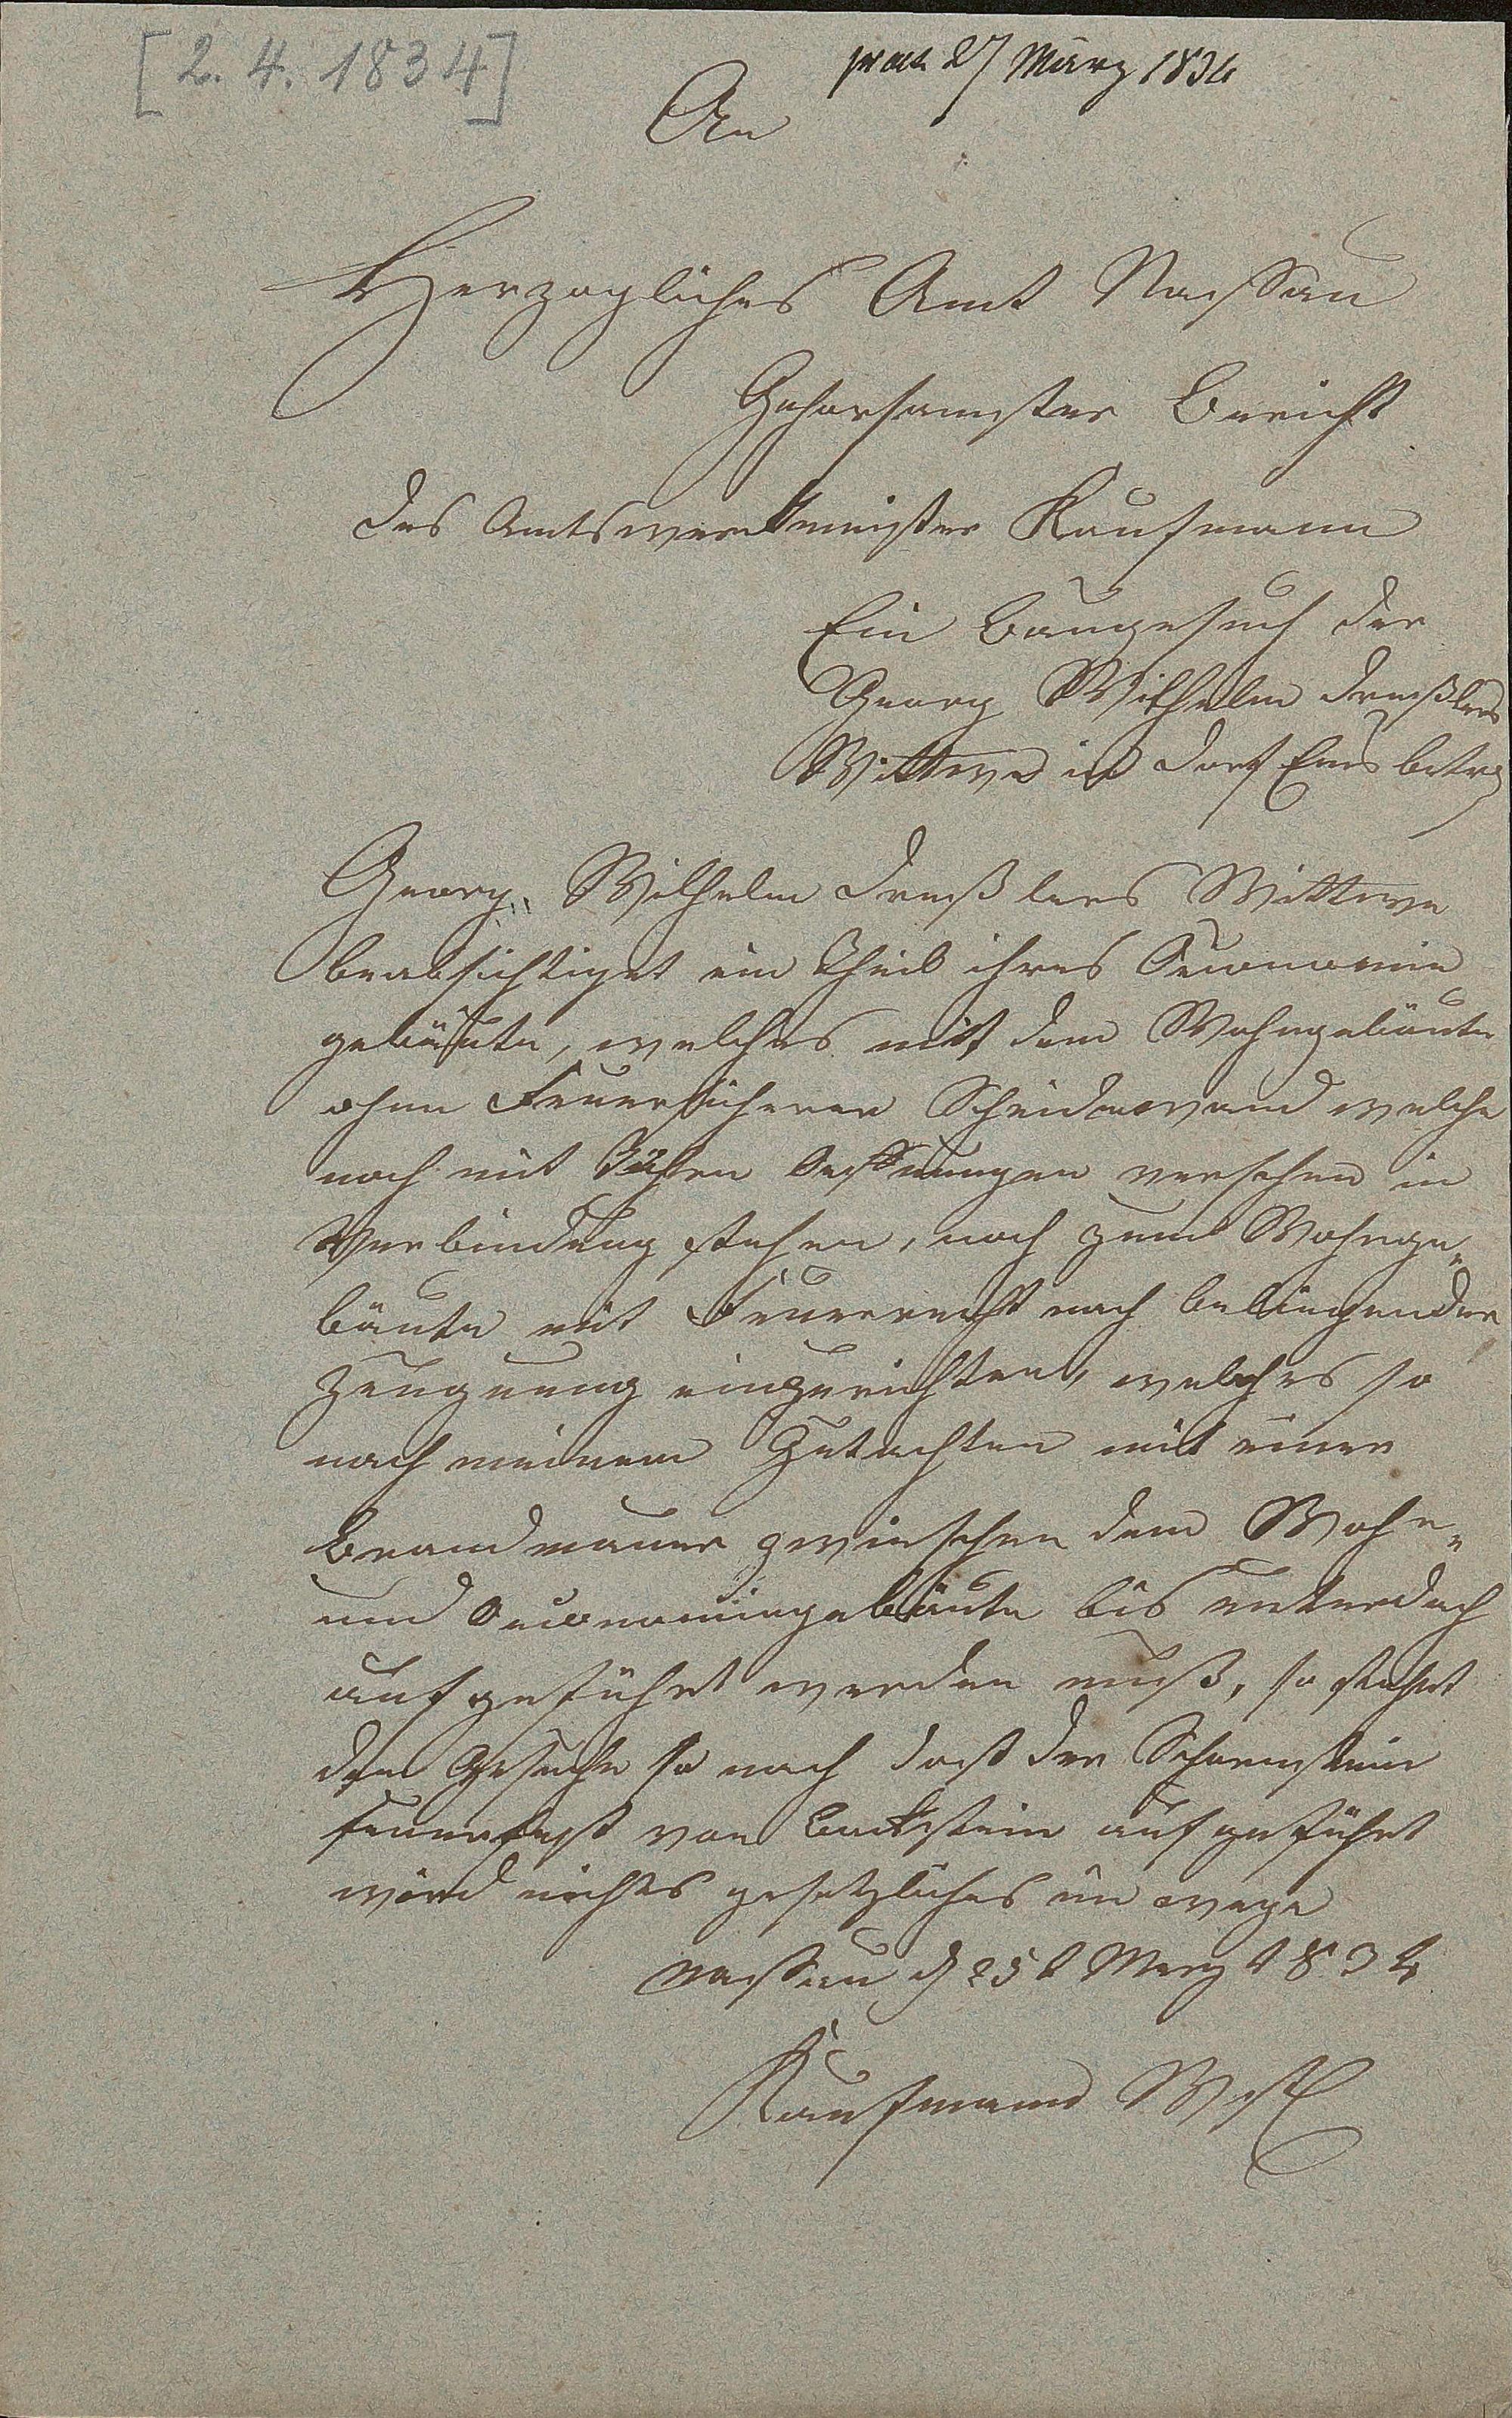 [2. 4. 1834]
praes 27 März 1834
An
Herzogliches Amt Nassau
Gehorsamster Bericht
des Amtswerkmeister Kaufmann
Ein Baugesuch der
Georg Wilhelm
Wittwe in Dorf Ems betrf
Georg Wilhelm Wittwe
beabsichtiget ein Theil ihres Oeconomie
gebäute, welches mit dem Wohngebäute
ohne Feuersicherer Scheidewand welche
noch mit Oeffnungen versehen in
Verbindung stehen, noch zum Wohnge„
bäute mit Feuerrecht nach beliegender
Zeugnung einzurichten, welches so
nach meinem Gutachten mit einer
Brandmauer zwieschen dem Wohn„
und Oeconomiegebäute bis unterdach
aufgeführt werden muß, so stehet
dem Gesuche so nach dast der Schornstein
feuerfest von Backstein aufgeführt
wird nichts gesetzliches im wege
Nassau d 25t Merz 1834
Kaufmann Wstr